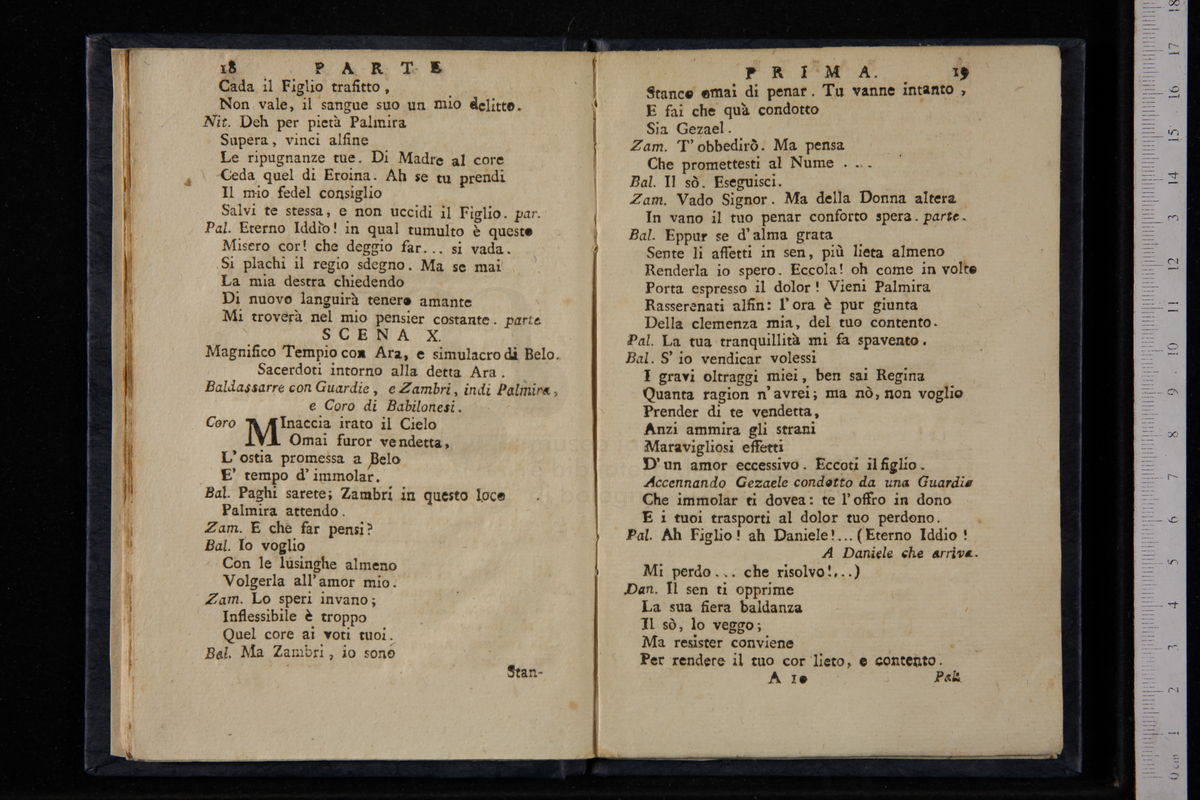 18 PARTE
Cada il Figlio trafitto,
Non vale, il sangue suo un mio delitto.
Nit. Deh per pietà Palmira
Supera, vinci alfine
Le ripugnanze tue. Di Madre al core
Ceda quel di Eroina. Ah se tu prendi
Il mio fedel consiglio
Salvi te stessa, e non uccidi il Figlio. par.
Pal. Eterno Iddio! in qual tumulto è questo
Misero cor! che deggio far... si vada.
Si plachi il regio sdegno. Ma se mai
La mia destra chiedendo
Di nuovo languirà tenero amante
Mi troverà nel mio pensier costante. parte
SCENA X.
Magnifico Tempio con Ara, e simulacro di Belo.
Sacerdoti intorno alla detta Ara.
Baldassarre con Guardie, e Zambri, indi Palmira,
e Coro di Babilonesi.
Coro MInaccia irato il Cielo
Omai furor vendetta,
L'ostia promessa a Belo
E' tempo d'immolar.
Bal. Paghi sarete; Zambri in questo loco
Palmira attendo.
Zam. E che far pensi?
Bal. Io voglio
Con le lusinghe almeno
Volgerla all'amor mio.
Zam. Lo speri invano;
Inflessibile è troppo
Quel core ai voti tuoi.
Bal. Ma Zambri, io sono
Stan-
PRIMA. 19
Stanco omai di penar. Tu vanne intanto,
E fai che quà condotto
Sia Gezael.
Zam. T'obbedirò. Ma pensa
Che promettesti al Nume ...
Bal. Il sò. Eseguisci.
Zam. Vado Signor. Ma della Donna altera
In vano il tuo penar conforto spera. parte.
Bal. Eppur se d'alma grata
Sente li affetti in sen, più lieta almeno
Renderla io spero. Eccola! oh come in volto
Porta espresso il dolor! Vieni Palmira
Rasserenati alfin: l'ora è pur giunta
Della clemenza mia, del tuo contento.
Pal. La tua tranquillità mi fa spavento.
Bal. S'io vendicar volessi
I gravi oltraggi miei, ben sai Regina
Quanta ragion n'avrei; ma nò, non voglio
Prender di te vendetta,
Anzi ammira gli strani
Maravigliosi effetti
D'un amor eccessivo. Eccoti il figlio.
Accennando Gezaele condotto da una Guardia
Che immolar ti dovea: te l'offro in dono
E i tuoi trasporti al dolor tuo perdono.
Pal. Ah Figlio! ah Daniele!... (Eterno Iddio!
A Daniele che arriva.
Mi perdo... che risolvo!...)
Dan. Il sen ti opprime
La sua fiera baldanza
Il sò, lo veggo;
Ma resister conviene
Per rendere il tuo cor lieto, e contento.
A 10 Pal.